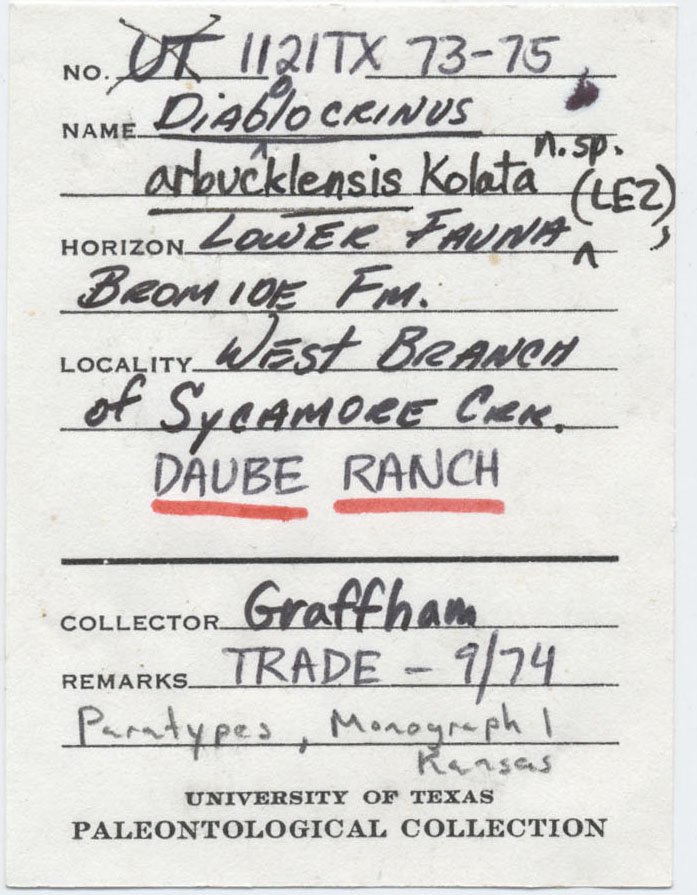 NO. UT 1121TX 73-75
NAME Diablocrinus
arbucklensis Kolata n.sp.
HORIZON LOWER FAUNA (LEZ),
BROMIDE FM.
LOCALITY WEST BRANCH
of SYCAMORE CRK.
DAUBE RANCH
COLLECTOR Graffham
REMARKS TRADE - 9/74
Paratypes, Monograph 1
Kansas
UNIVERSITY OF TEXAS
PALEONTOLOGICAL COLLECTION